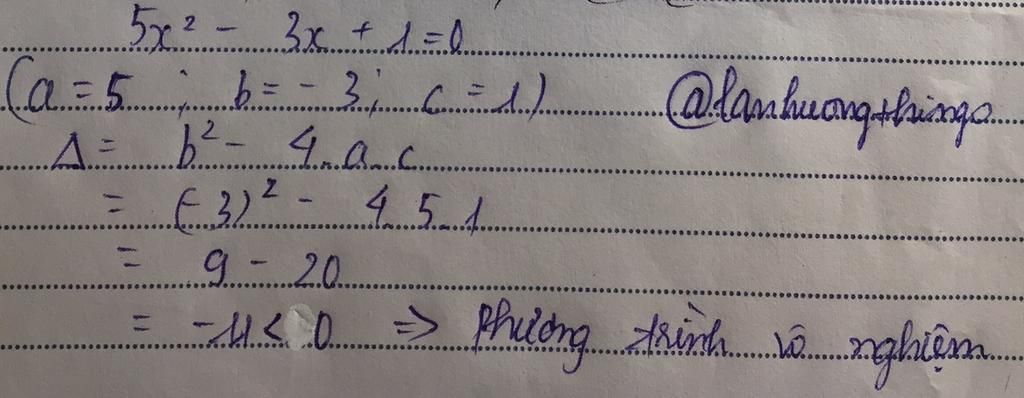 5x² - 3x + 1 = 0
(a = 5 ; b = - 3 ; c = 1) @lanhuongthingo
Δ = b² - 4.a.c
= (-3)² - 4.5.1
= 9 - 20
= -11 < 0 => Phương trình vô nghiệm